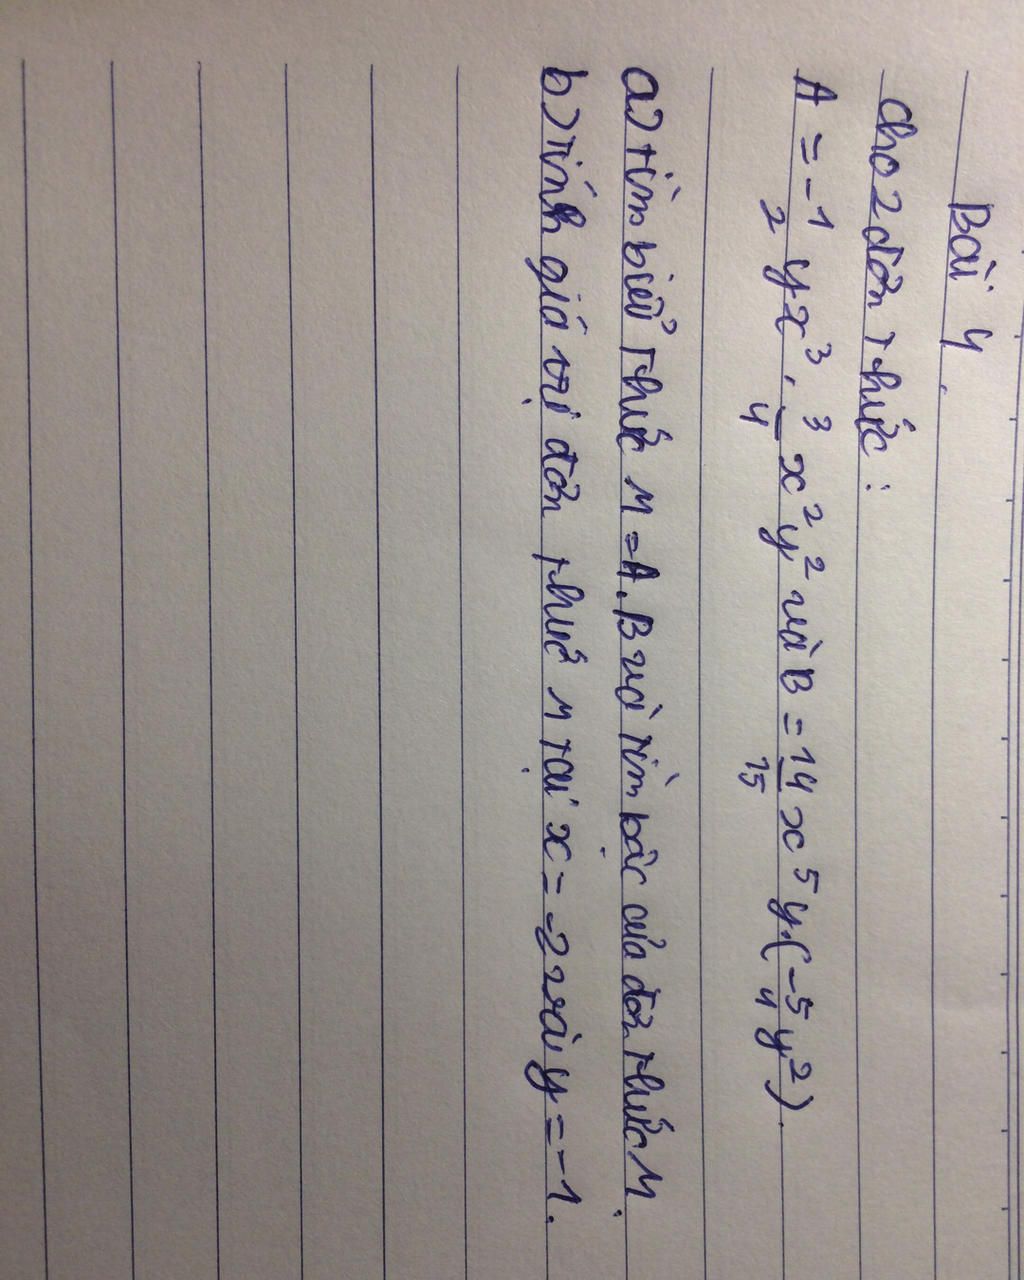 Bài 4
Cho 2 đơn thức :
A = -1/2 yx³ . 3/4 x²y² và B = 14/15 x⁵y.(-5/4 y²).
a) tìm biểu thức M = A.B và tìm bậc của đơn thức M.
b) Tính giá trị đơn thức M tại x = -2 và y = -1.